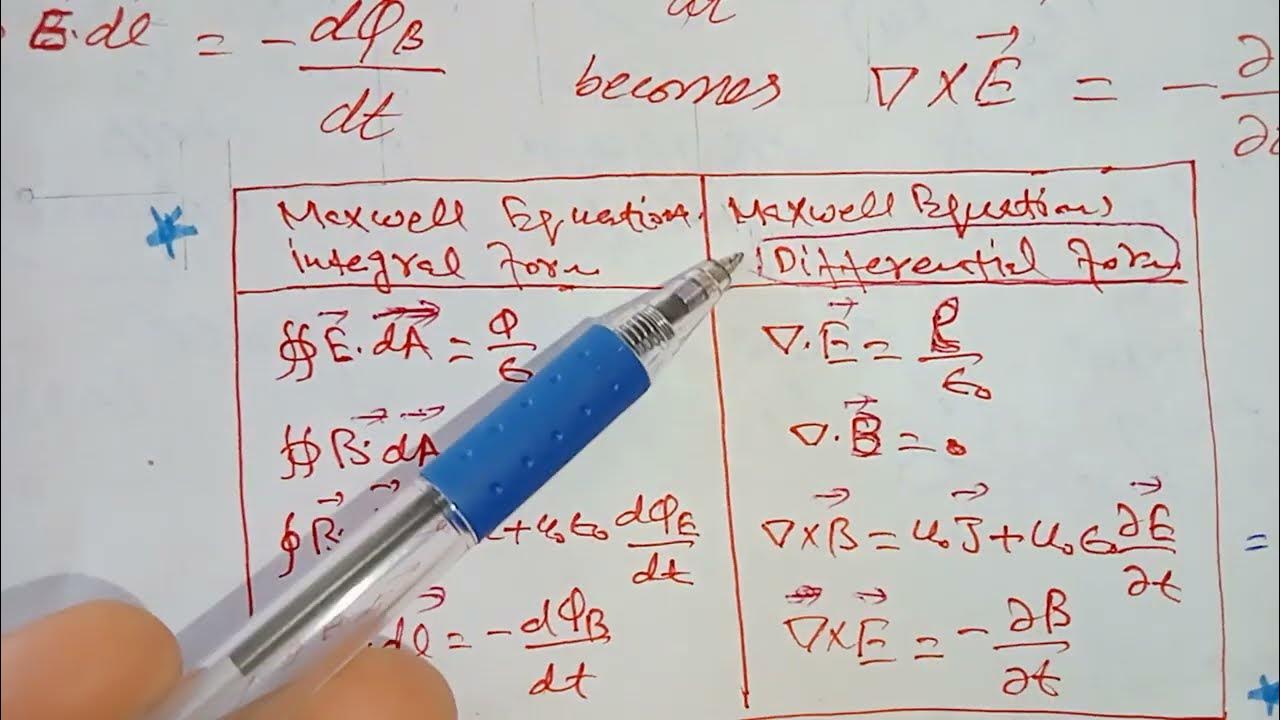 E.dl = - dφB/dt becomes ∇×E⃗ = - ∂/∂
Maxwell Equations integral Form
Maxwell Equations Differential Form
∯ E⃗. dA⃗ = φ/ε
∇. E⃗ = ρ/ε₀
∯ B⃗. dA⃗
∇. B⃗ = 0
∮ B⃗. + μ₀ε₀ dφE/dt
∇×B⃗ = μ₀J⃗ + μ₀ε₀ ∂E⃗/∂t
.dl⃗ = - dφB/dt
∇⃗×E⃗ = - ∂B/∂t
=